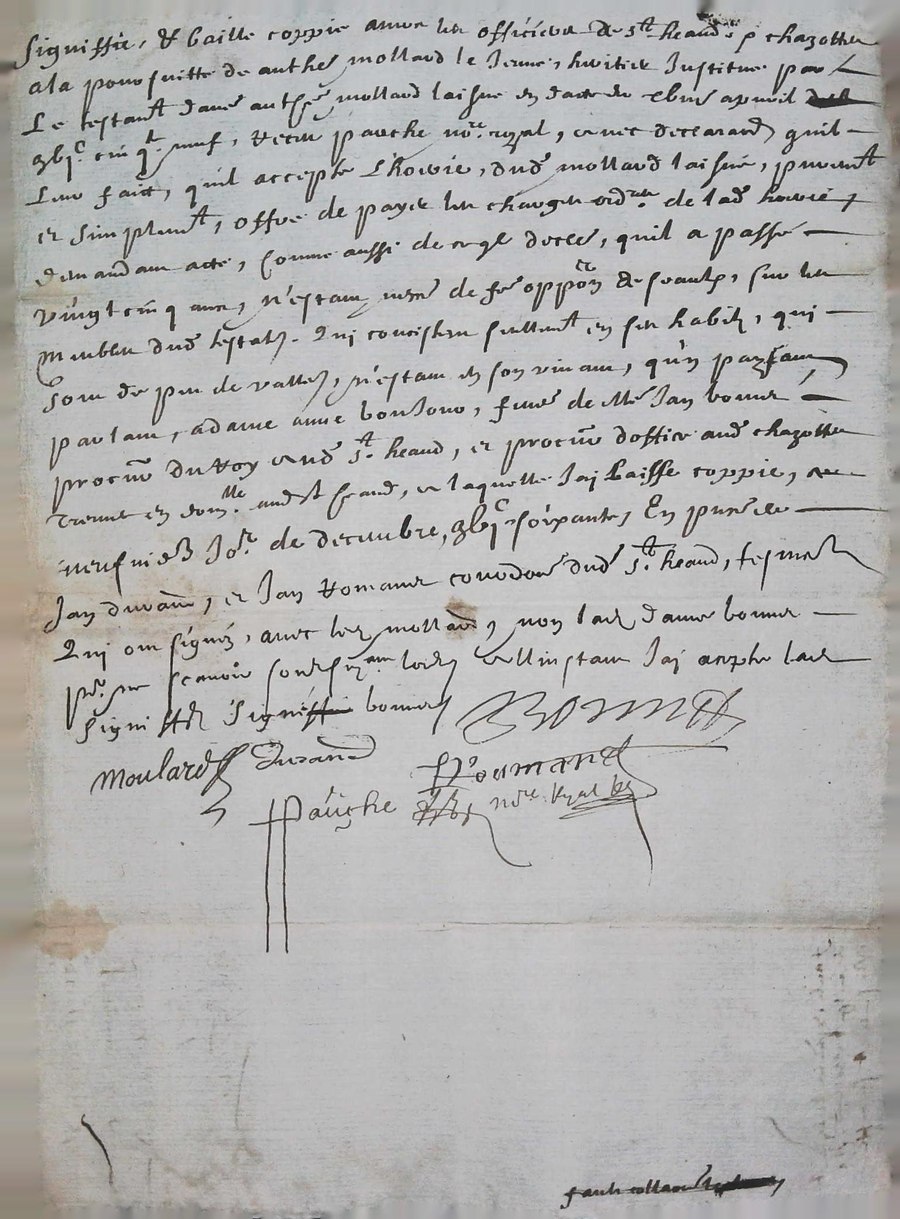 Signiffie, & baille coppie aux officiers de st. heand, & chazottes
a la poursuitte de anthe mollard le Jeune, heritier Institue par
Le testamt. dautre anthe. mollard laisne en datte du apvril
gbjc. cinqte. neuf, receu pauche nore. royal, avec declaraon quil
Leur faict, quil accepte Lhoirie, dud mollard laisné, puremt
et simplemt, offre de payer les charges ordres de lad hoirie,
demandant acte, comme aussi de ce quil decl, quil a passé
vingt cinq ans, n'estant de fe. oppon de sceaulx, sur les
Meubles dud testatr. Qui concistent seullemt en ses habitz, qui
sont de peu de valleur, n'estant en son vivant, qu'un paysant
parlant, a dame anne bonjour, femme de Me Jan bonnet
procur du Roy aud st. heand, et procur doffice aud chazottes
Treuvee en domlle. aud st heand, a laquelle Jai Laisse coppie, ce
neufviesme Jor. de decembre, gbjc. soixante, En presence
Jan durand, et Jan Romanet cordonr dud st. heand, tesmoins
Qui ont signéz, avec led mollard, non lad dame bonnet
pr. ne scavoir et a linstant Jai accepte lad
signiffon bonnet
Bonnet
Moulard Durand Roumanet
Pauche nore. Ryal